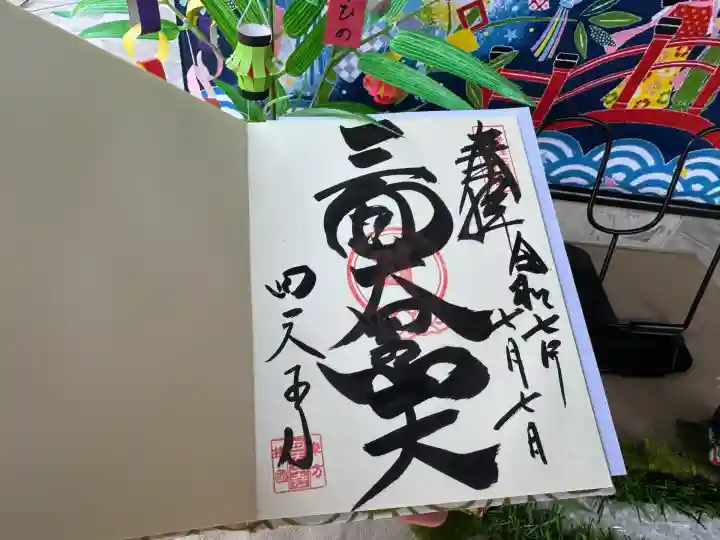 びの
奉拝
令和七年
七月七日
三面大黒天
四天王寺